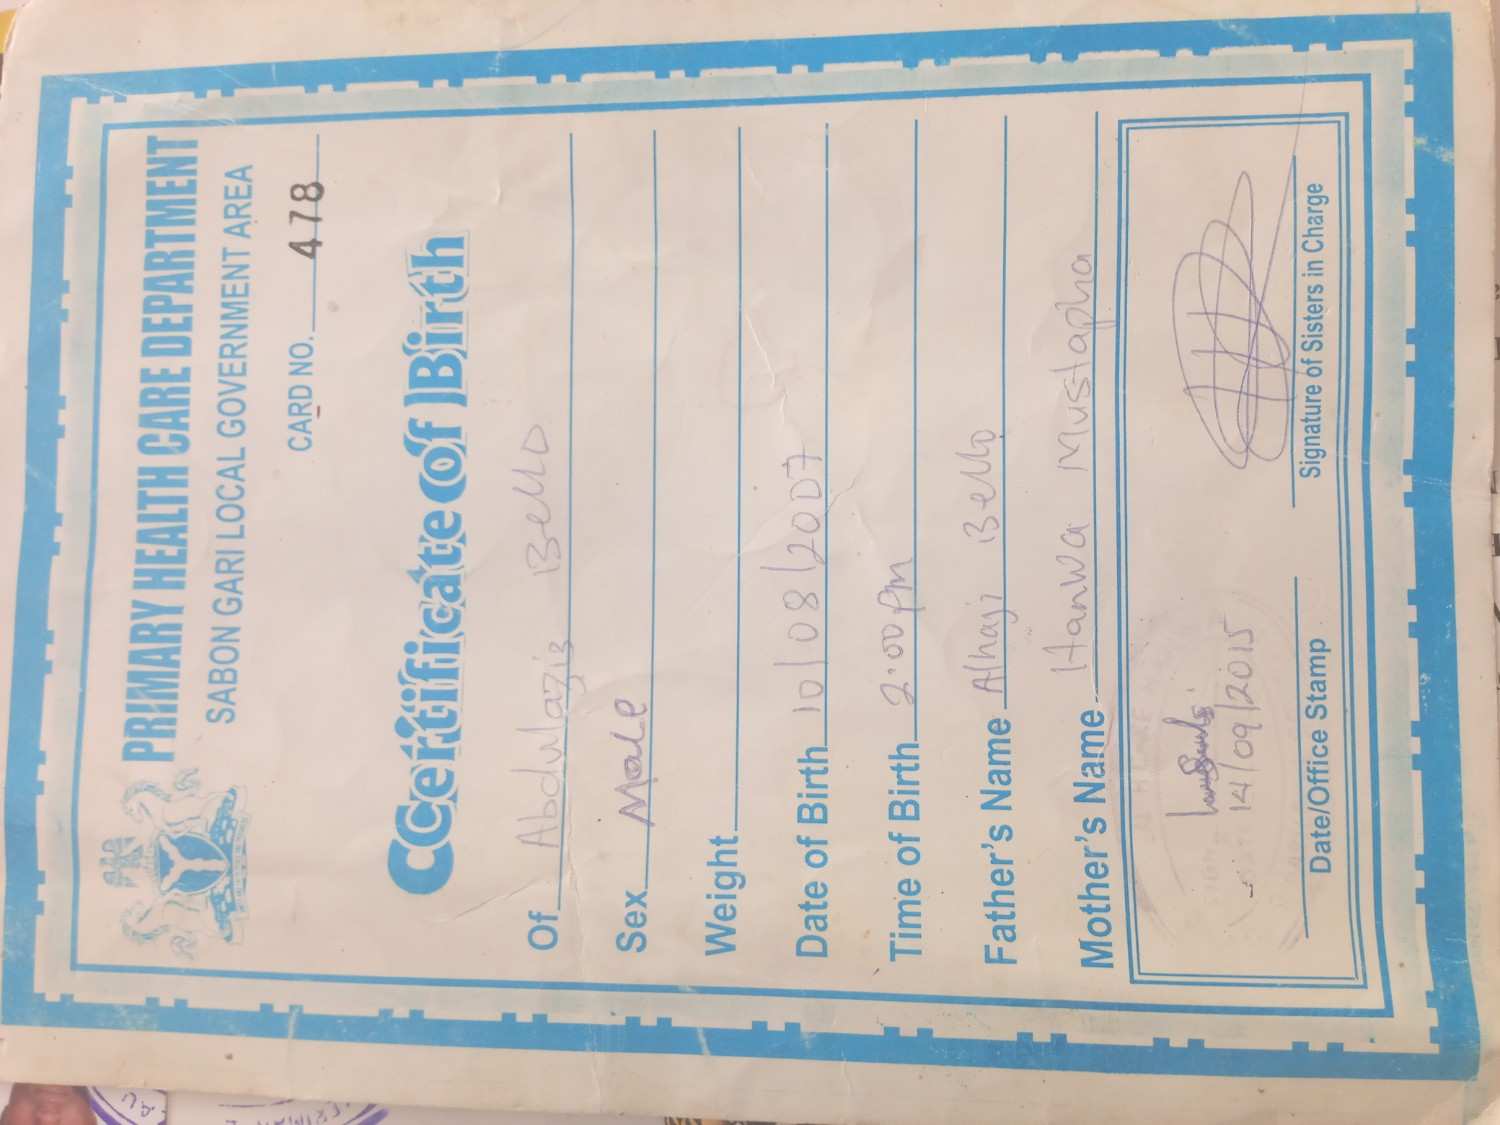 PRIMARY HEALTH CARE DEPARTMENT
SABON GARI LOCAL GOVERNMENT AREA
CARD NO. 478
Certificate of Birth
Of Abdulaziz Bello
Sex Male
Weight
Date of Birth 10/08/2007
Time of Birth 2:00 pm
Father's Name Alhaji Bello
Mother's Name Hanwa Mustapha
14/09/2015
Date/Office Stamp
Signature of Sisters in Charge